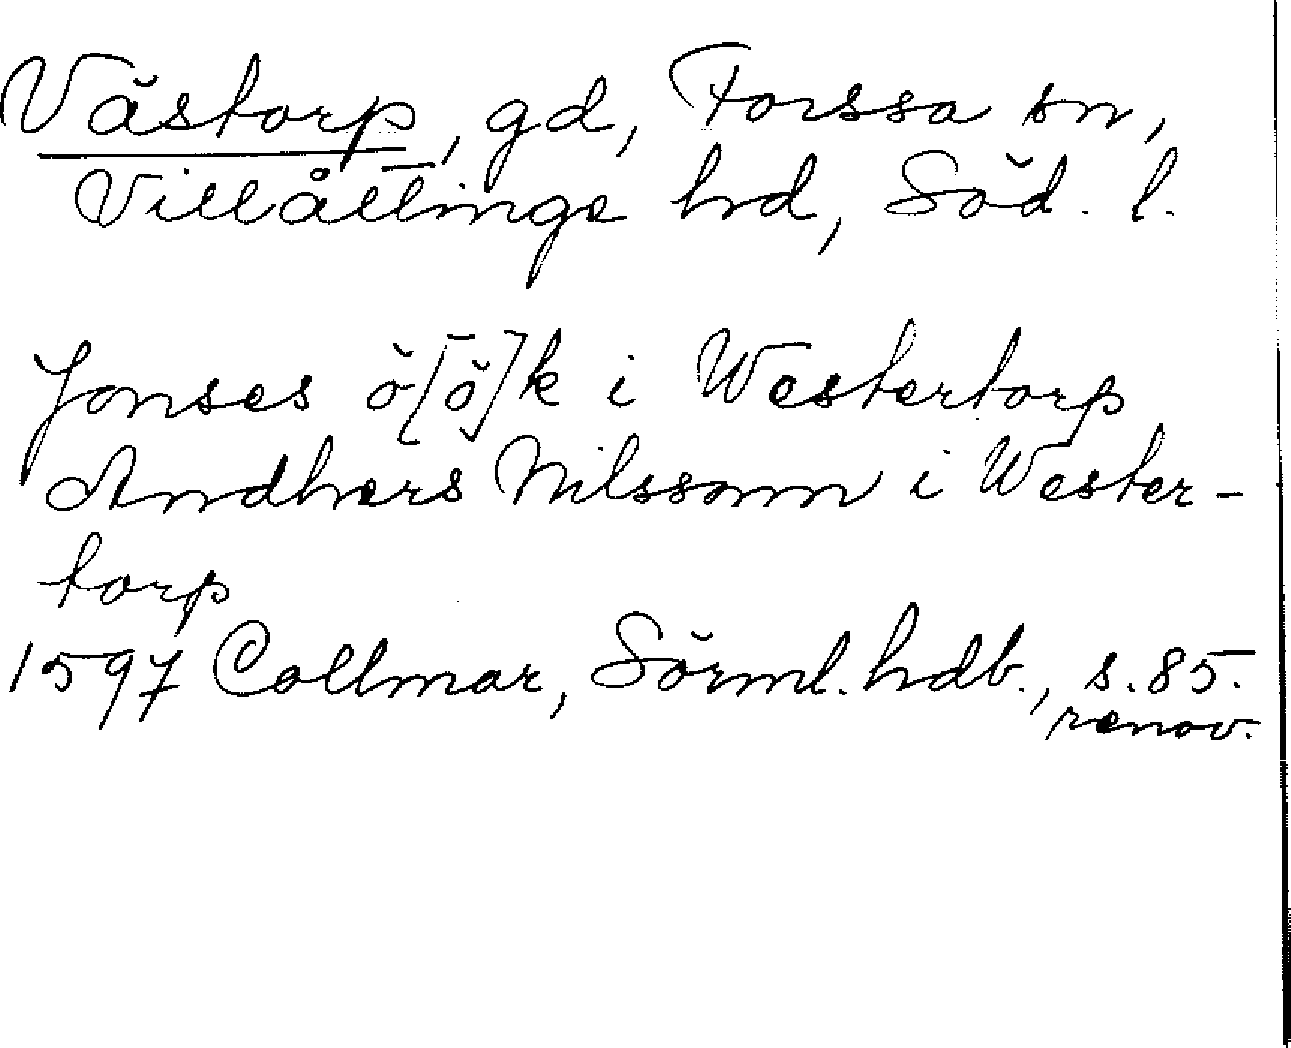 Västorp, gd, Forssa sn,
Villåttinge hd, Söd. l.
Jonses ö[ö]k i Westertorp
Andhers Nilssonn i Wester-
torp
1597 Collmar, Sörml. hdb., s. 85.
renov.